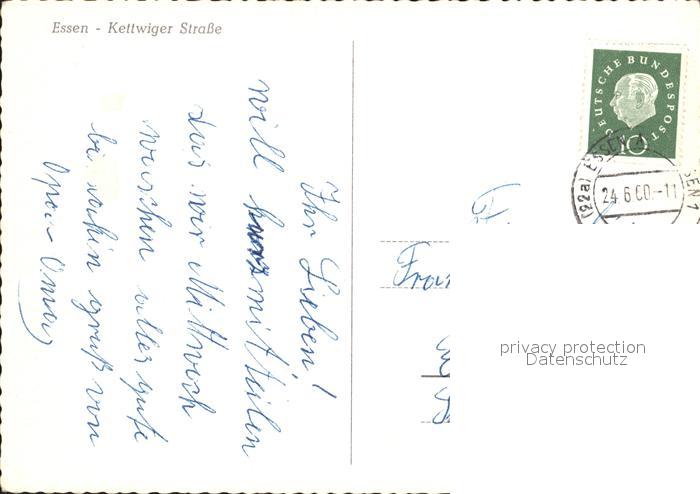 Essen - Kettwiger Straße
DEUTSCHE BUNDESPOST
10
(22a) ESSEN 1
24.6.60.-11
Ihr Lieben!
will kurz mitteilen
das wir Mittwoch
alles gute
gruß von
Opa u Oma
Frau
privacy protection
Datenschutz